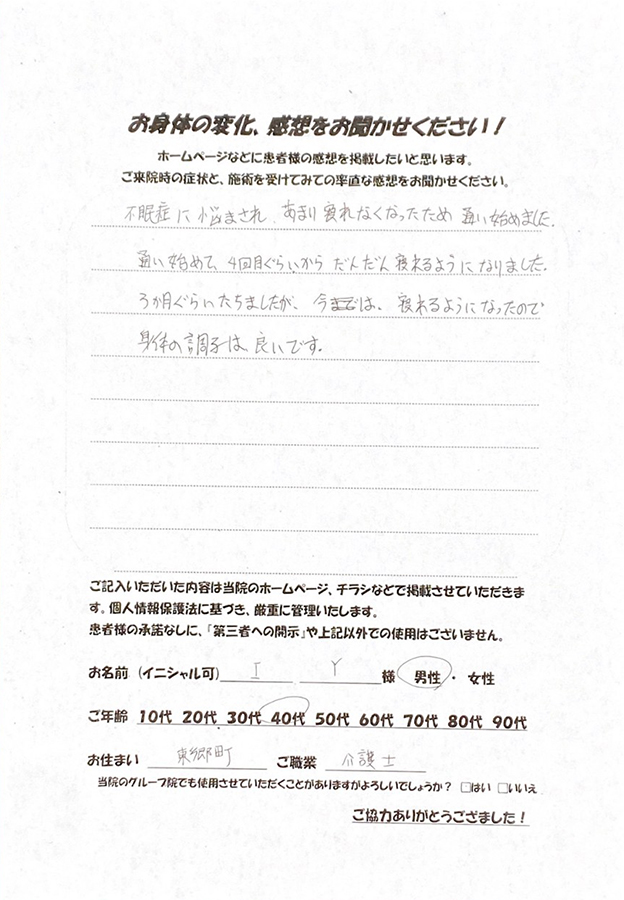 お身体の変化、感想をお聞かせください！
ホームページなどに患者様の感想を掲載したいと思います。
ご来院時の症状と、施術を受けてみての率直な感想をお聞かせください。
不眠症に悩まされ、あまり寝れなくなったため 通い始めました。
通い始めて、4回目ぐらいから だんだん寝れるようになりました。
3か月ぐらいたちましたが、今では、寝れるようになったので
身体の調子は良いです。
ご記入いただいた内容は当院のホームページ、チラシなどで掲載させていただきま
す。個人情報保護法に基づき、厳重に管理いたします。
患者様の承諾なしに、『第三者への開示』や上記以外での使用はございません。
お名前（イニシャル可） I Y 様 男性・女性
ご年齢 10代 20代 30代 40代 50代 60代 70代 80代 90代
お住まい 東郷町 ご職業 介護士
当院のグループ院でも使用させていただくことがありますがよろしいでしょうか？ □はい □いいえ
ご協力ありがとうござました！